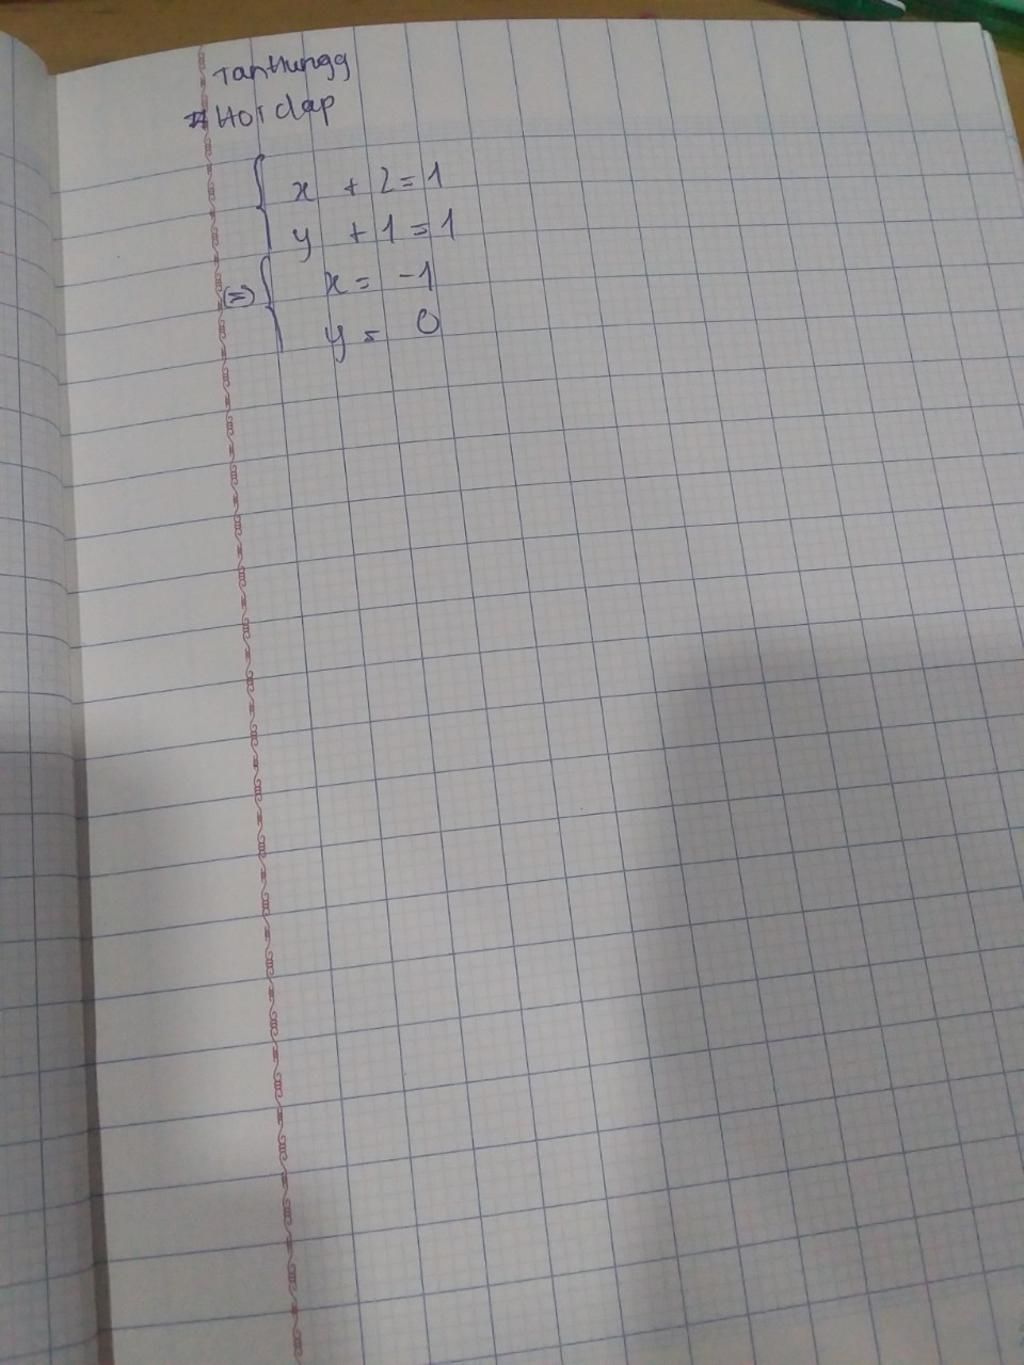 Tanhungg
# Hoidap
{ x + 2 = 1
y + 1 = 1
(=) { x = -1
y = 0